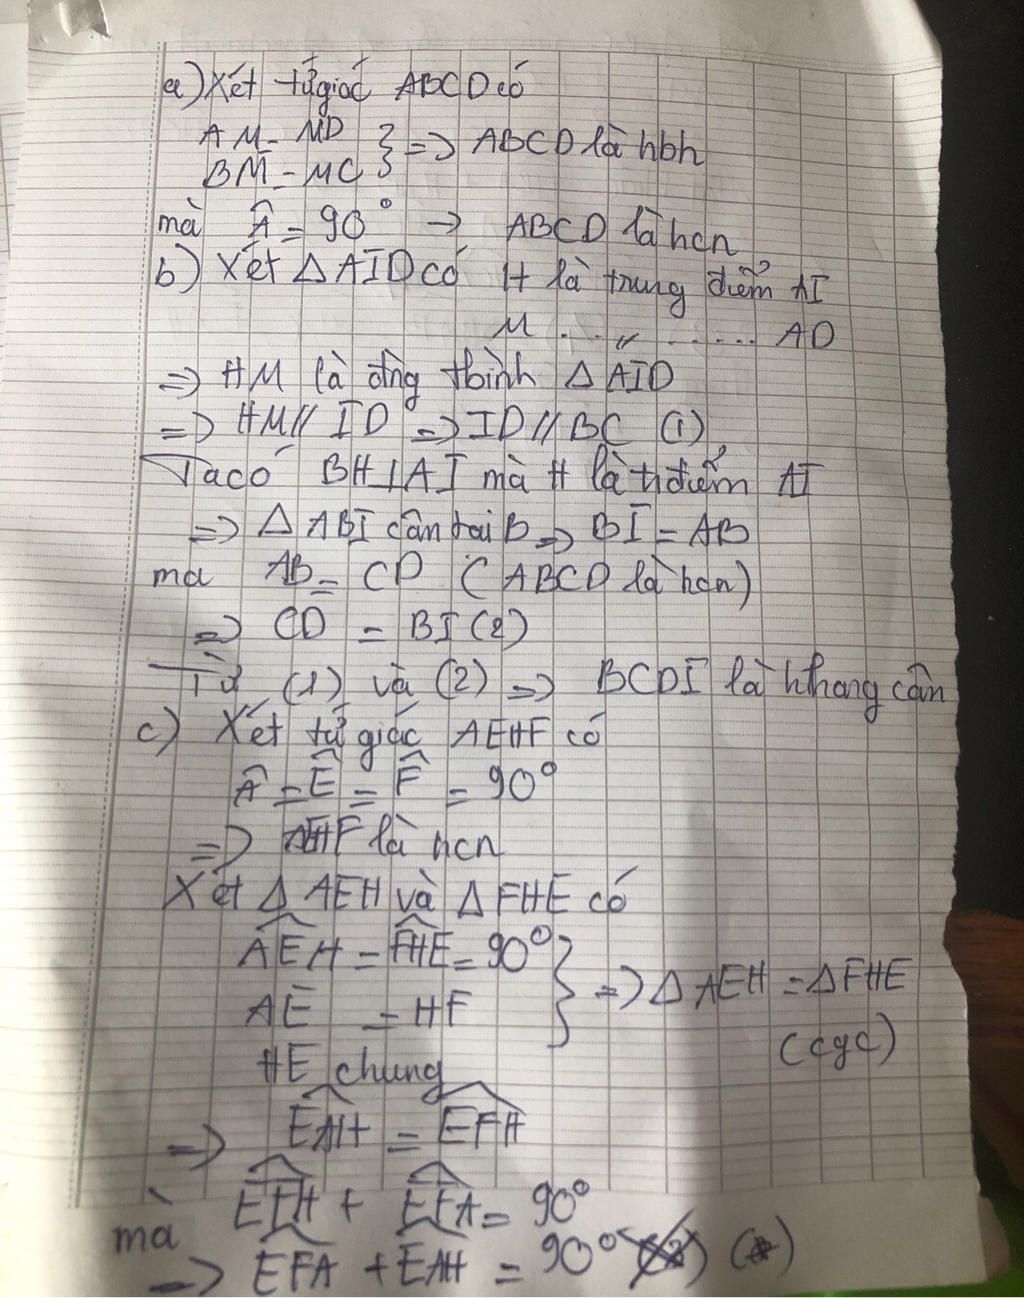 a) Xét tứ giác ABCD có
AM = MD
BM = MC } => ABCD là hbh
mà Â = 90° -> ABCD là hcn
b) Xét △AID có H là trung điểm AI
M .. " ..... AD
=> HM là đng tbình △AID
=> HM // ID => ID // BC (1)
Ta có BH ⊥ AI mà H là tđiểm AI
=> △ABI cân tại B => BI = AB
mà AB = CD (ABCD là hcn)
=> CD = BI (2)
Từ (1) và (2) => BCDI là hthang cân
c) Xét tứ giác AEHF có
Â = Ê = F̂ = 90°
=> AEHF là hcn
Xét △AEH và △FHE có
AEH = FHE = 90°
AE = HF } => △AEH = △FHE
HE chung (cgc)
=> EAH = EFH
mà EFH + EFA = 90°
=> EFA + EAH = 90° (*)